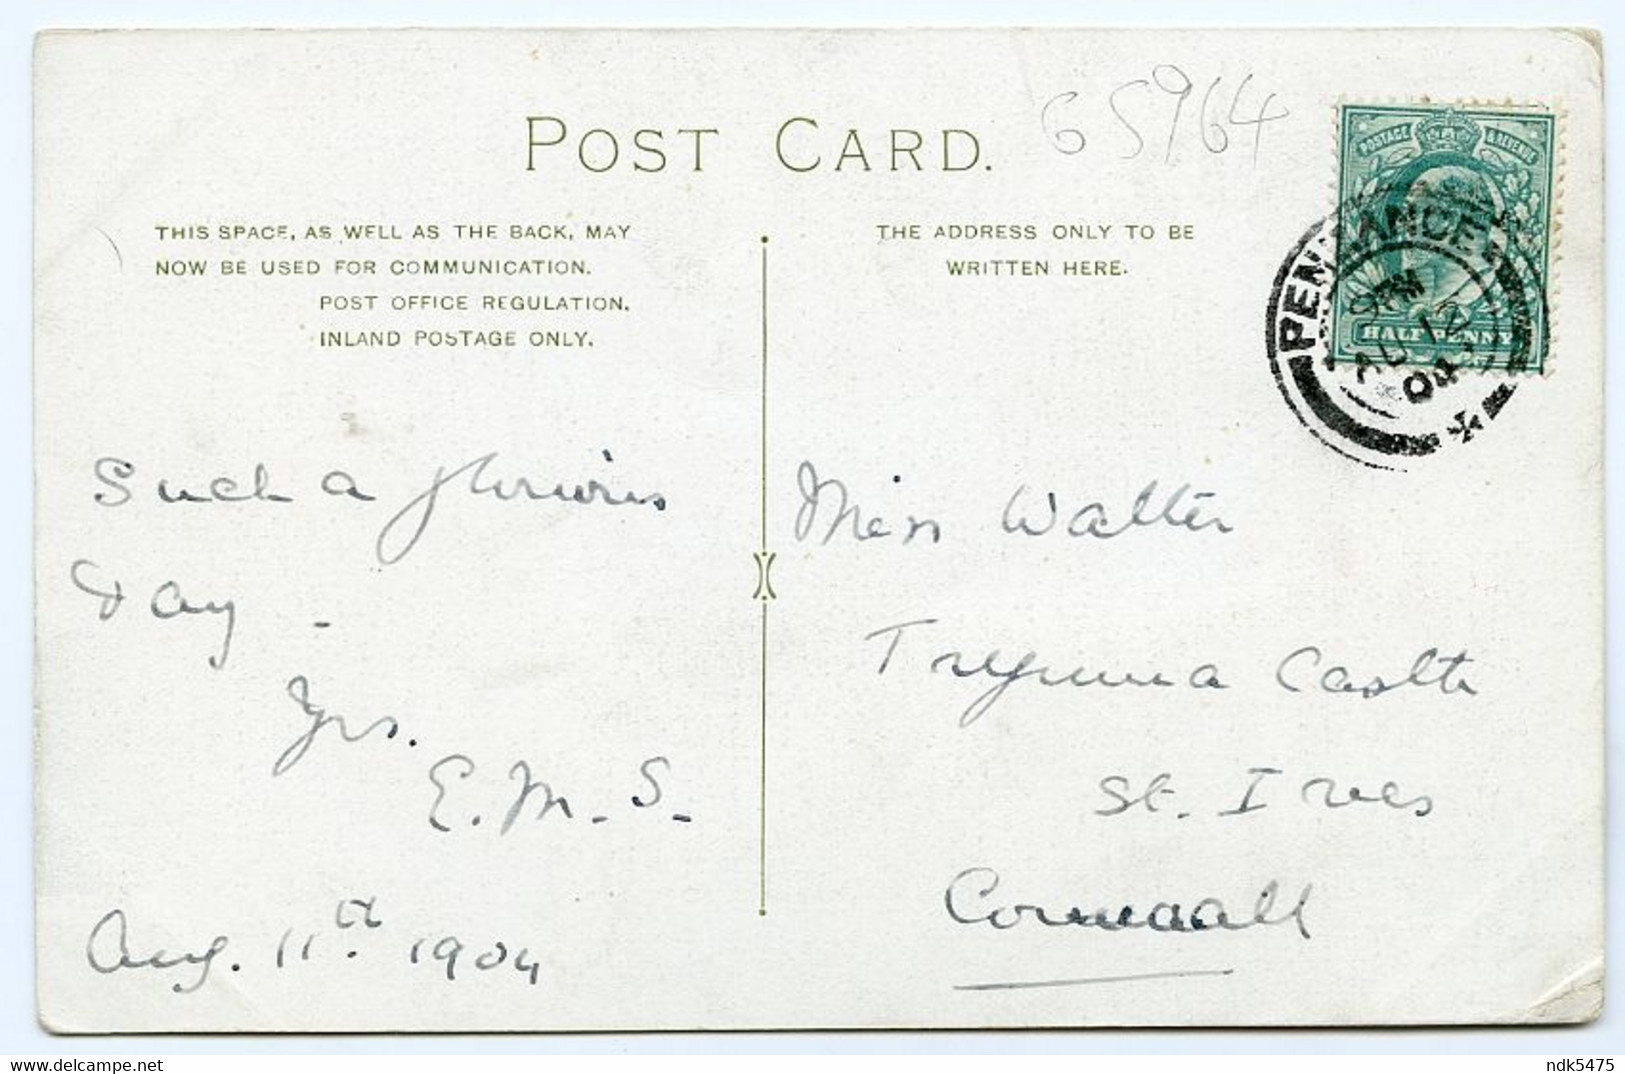 POST CARD.
65964
THIS SPACE, AS WELL AS THE BACK, MAY
NOW BE USED FOR COMMUNICATION.
POST OFFICE REGULATION.
INLAND POSTAGE ONLY.
THE ADDRESS ONLY TO BE
WRITTEN HERE.
POSTAGE & REVENUE
HALFPENNY
PENZANCE
9 PM
AU 12
04
Such a glorious
day -
Yrs.
E. M. S.
Aug. 11th 1904
Miss Walter
Tregenna Castle
St. Ives
Cornwall
ndk5475